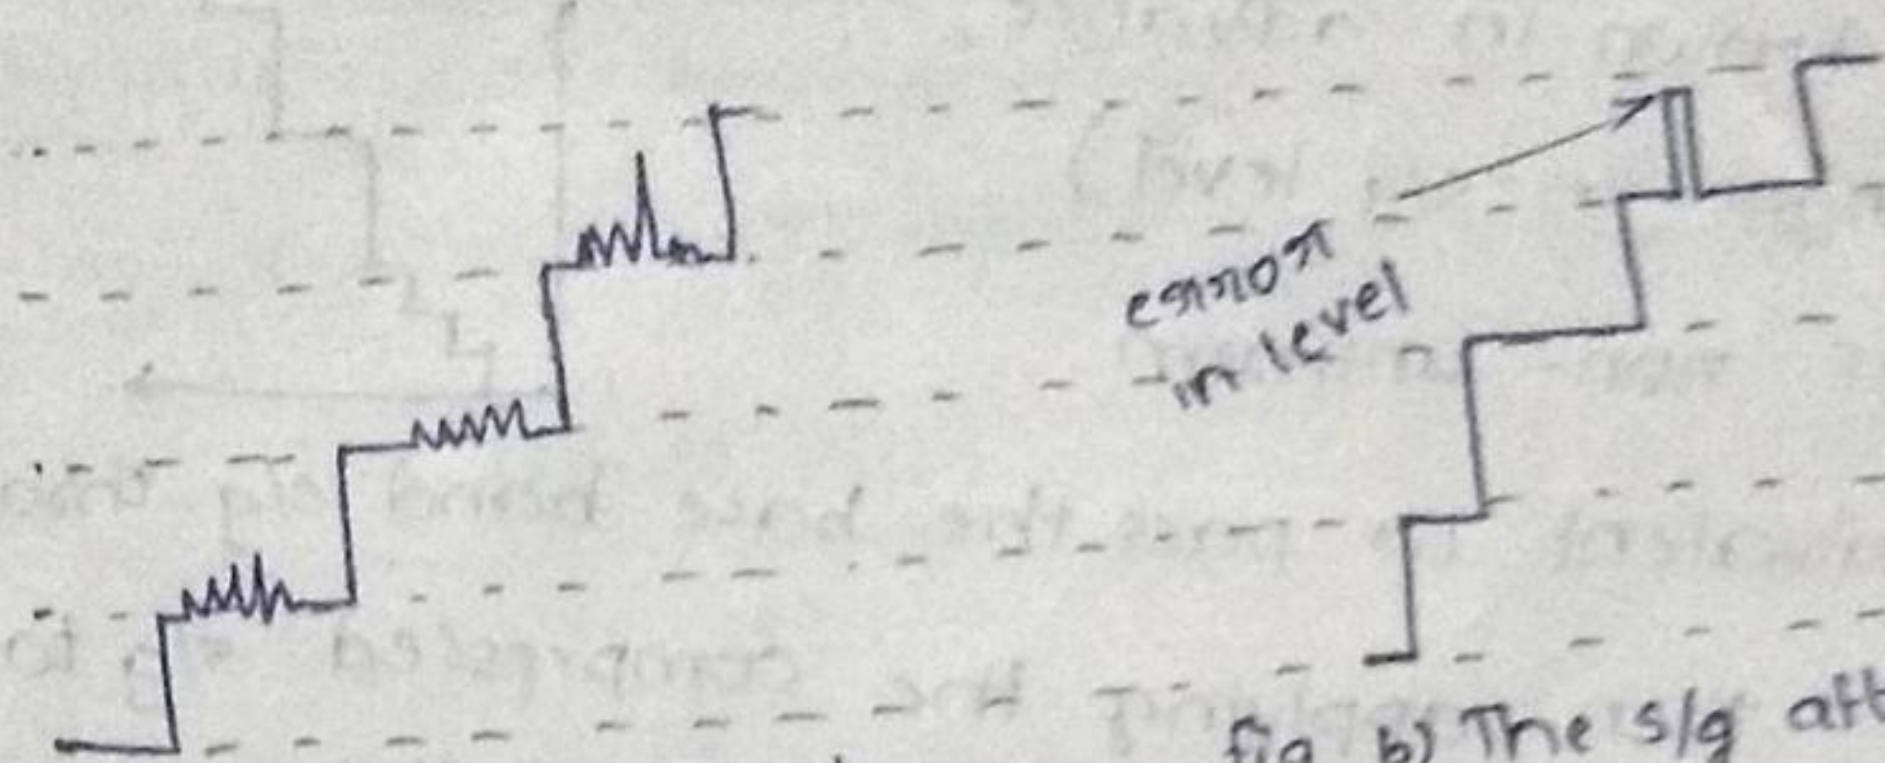 error
in level
fig b) The s/g aft